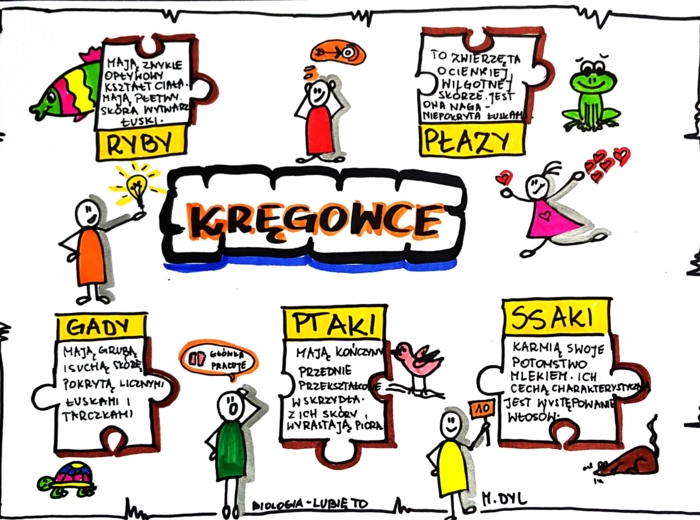 MAJĄ ZWYKLE
OPŁYWOWY
KSZTAŁT CIAŁA.
MAJĄ PŁETWY.
SKÓRA WYTWARZA
ŁUSKI.
RYBY
TO ZWIERZĘTA
O CIENKIEJ,
WILGOTNEJ
SKÓRZE. JEST
ONA NAGA -
NIEPOKRYTA ŁUSKAMI
PŁAZY
KRĘGOWCE
GADY
MAJĄ GRUBĄ
I SUCHĄ SKÓRĘ,
POKRYTĄ LICZNYMI
ŁUSKAMI I
TARCZKAMI
GŁÓWKA
PRACUJE
PTAKI
MAJĄ KOŃCZYNY
PRZEDNIE
PRZEKSZTAŁCONE
W SKRZYDŁA.
Z ICH SKÓRY
WYRASTAJĄ PIÓRA.
SSAKI
KARMIĄ SWOJE
POTOMSTWO
MLEKIEM. ICH
CECHĄ CHARAKTERYSTYCZNĄ
JEST WYSTĘPOWANIE
WŁOSÓW.
10
BIOLOGIA - LUBIĘ TO
M. DYL